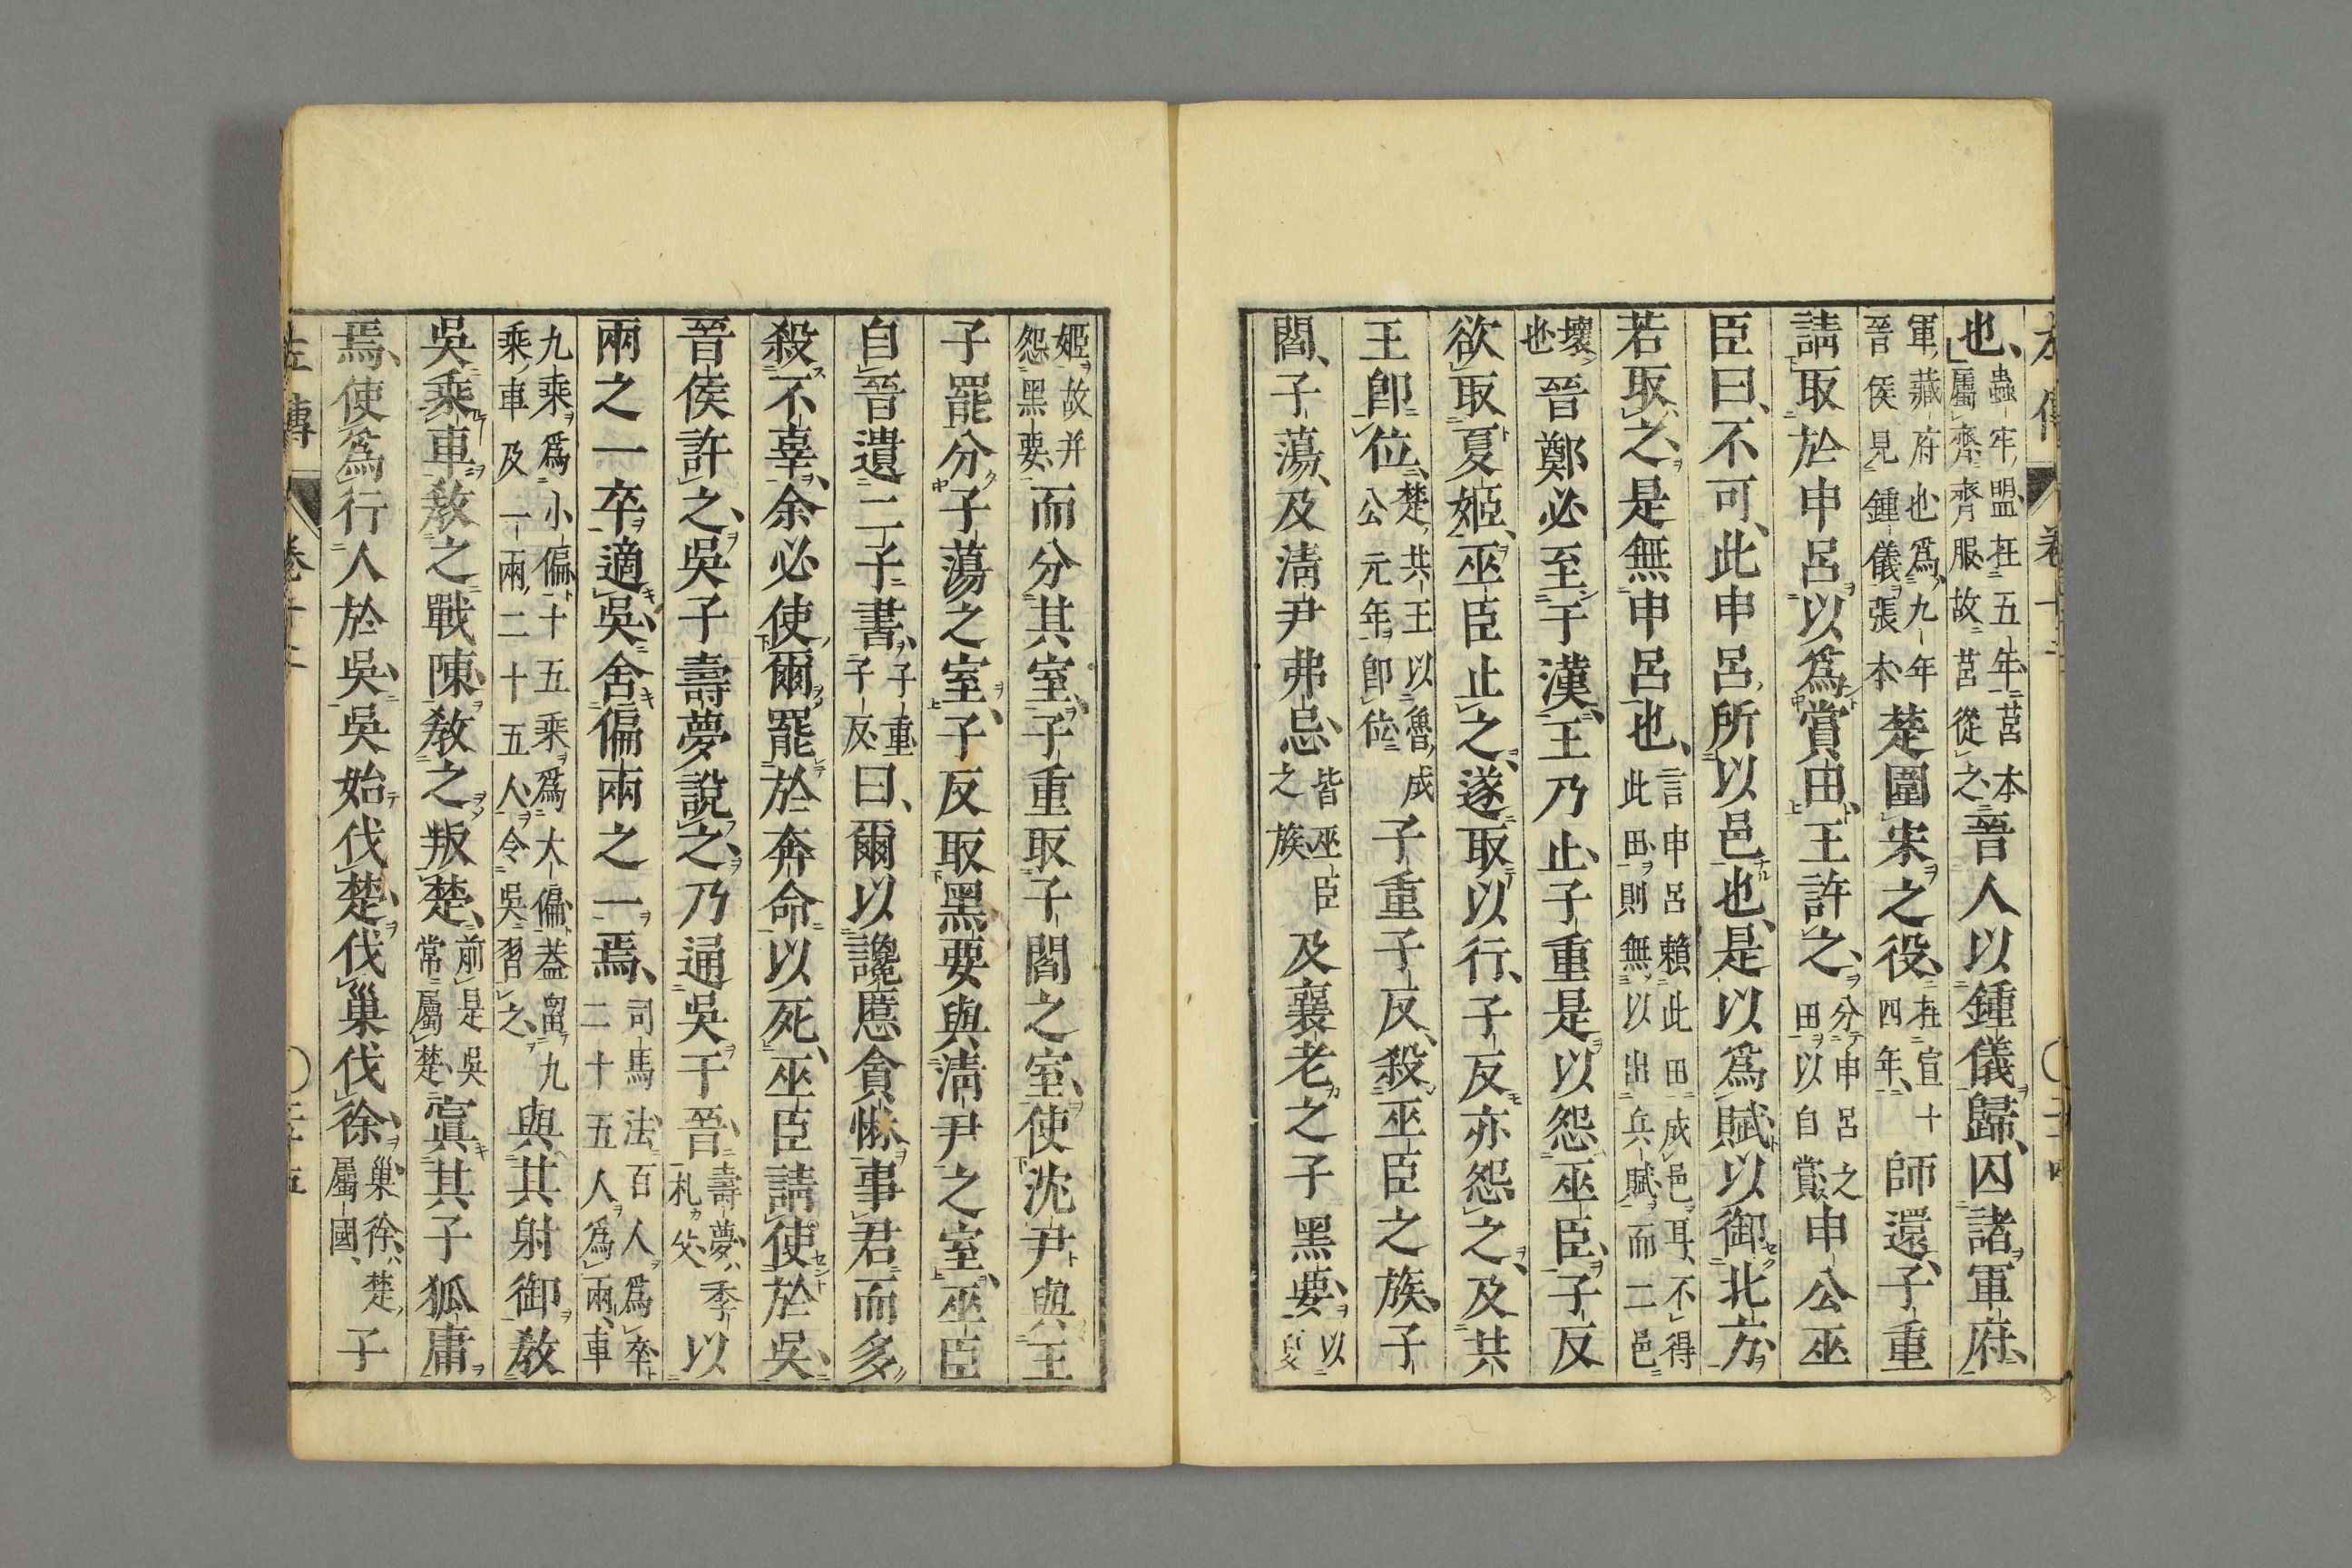 也、蟲牢盟在五年莒本屬齊齊服故莒從之晉人以鍾儀歸囚諸軍府
軍藏府也爲九年晉侯見鍾儀張本楚圍宋之役在宣十四年師還子重
請取於申呂以爲賞田王許之分申呂之田以自賞申公巫
臣曰不可此申呂所以邑也是以爲賦以御北方
若取之是無申呂也言申呂賴此田成邑耳不得此田則無以出兵賦而二邑
壞也晉鄭必至于漢王乃止子重是以怨巫臣子反
欲取夏姬巫臣止之遂取以行子反亦怨之及共
王卽位楚共王以魯成公元年卽位子重子反殺巫臣之族子
閻子蕩及淸尹弗忌皆巫臣之族及襄老之子黑要以夏
姬故并怨黑要而分其室子重取子閻之室使沈尹與王
子罷分子蕩之室子反取黑要與淸尹之室巫臣
自晉遺二子書子重子反曰爾以讒慝貪惏事君而多
殺不辜余必使爾罷於奔命以死巫臣請使於吳
晉侯許之吳子壽夢說之乃通吳于晉壽夢季札父以
兩之一卒適吳舍偏兩之一焉司馬法百人爲卒二十五人爲兩車
九乘爲小偏十五乘爲大偏蓋留九乘車及一兩二十五人令吳習之與其射御敎
吳乘車敎之戰陳敎之叛楚前是吳常屬楚寘其子狐庸
焉使爲行人於吳吳始伐楚伐巢伐徐巢徐楚屬國子
左傳 卷十二 〇二十五